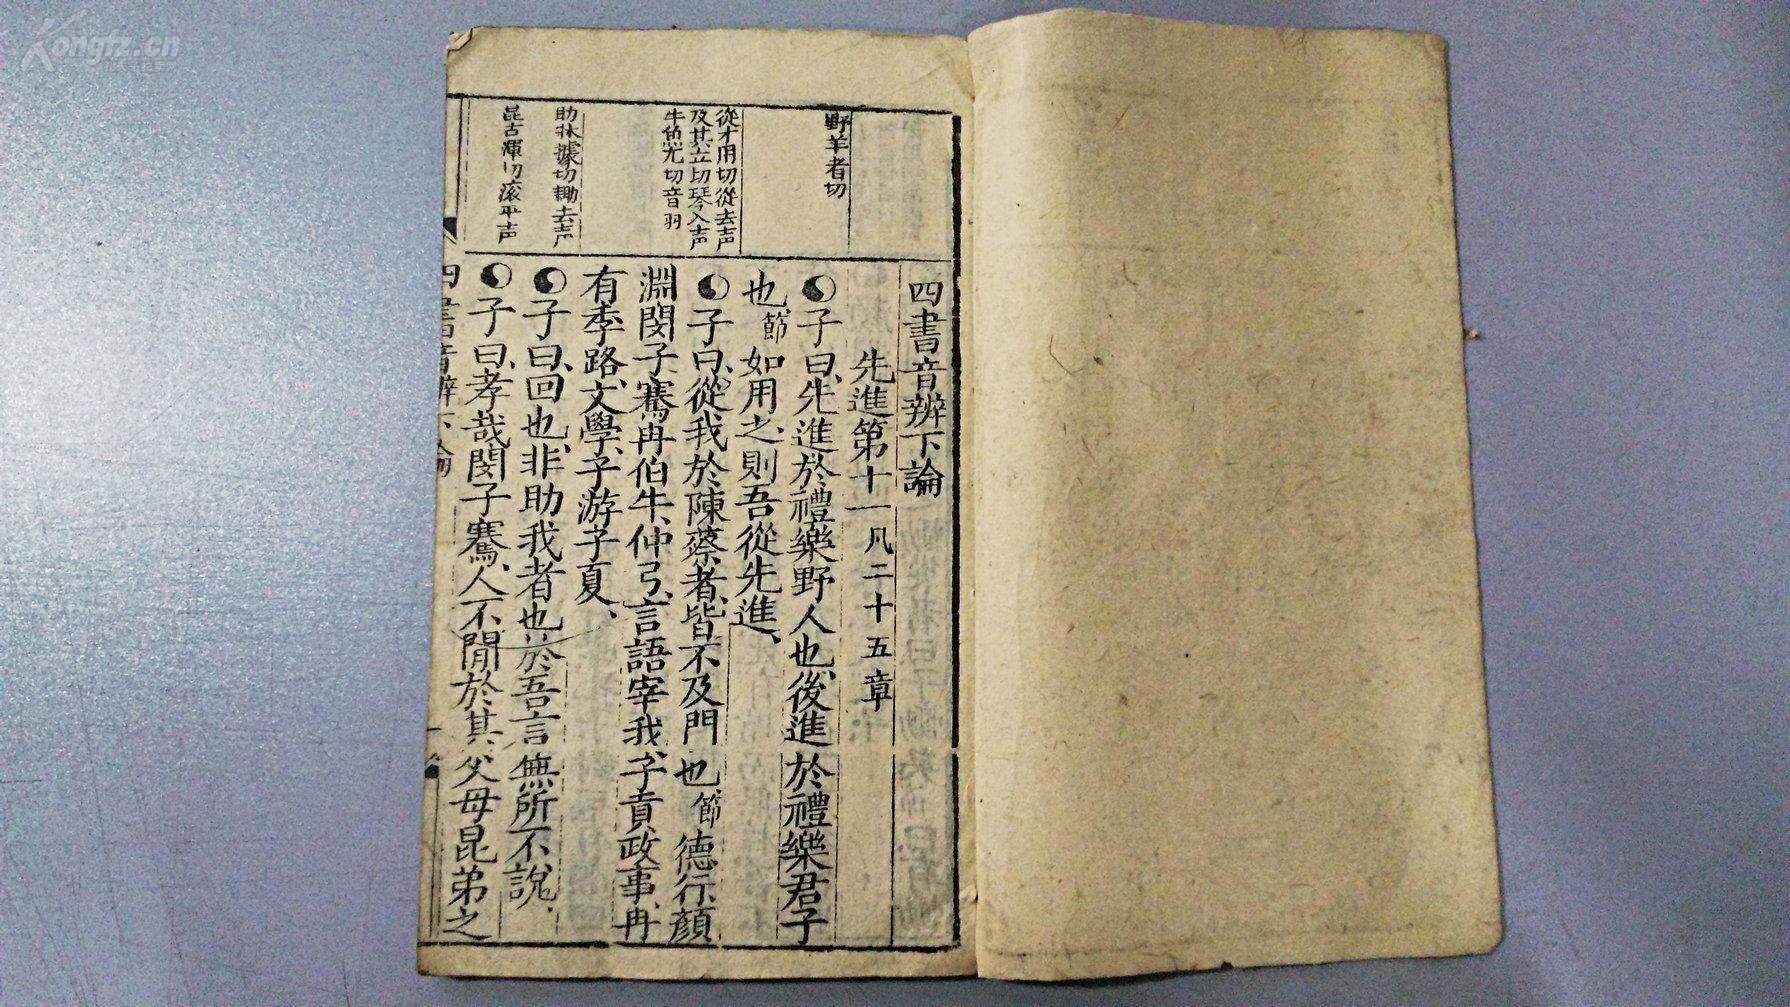 四書音辨下論
先進第十一凡二十五章
子曰、先進於禮樂野人也、後進於禮樂君子
也、節如用之、則吾從先進、
子曰、從我於陳蔡者、皆不及門也、節德行、顏
淵閔子騫冉伯牛、仲弓、言語宰我、子貢、政事、冉
有季路、文學、子游子夏、
子曰、回也、非助我者也於吾言無所不說、
子曰、孝哉閔子騫、人不間於其父母昆弟之
野羊者切
從才用切從去声
及其立切琴入声
牛魚尤切音
助牀據切耡去声
昆古渾切滚平声
四書音辨下論
一
Kongfz.cn